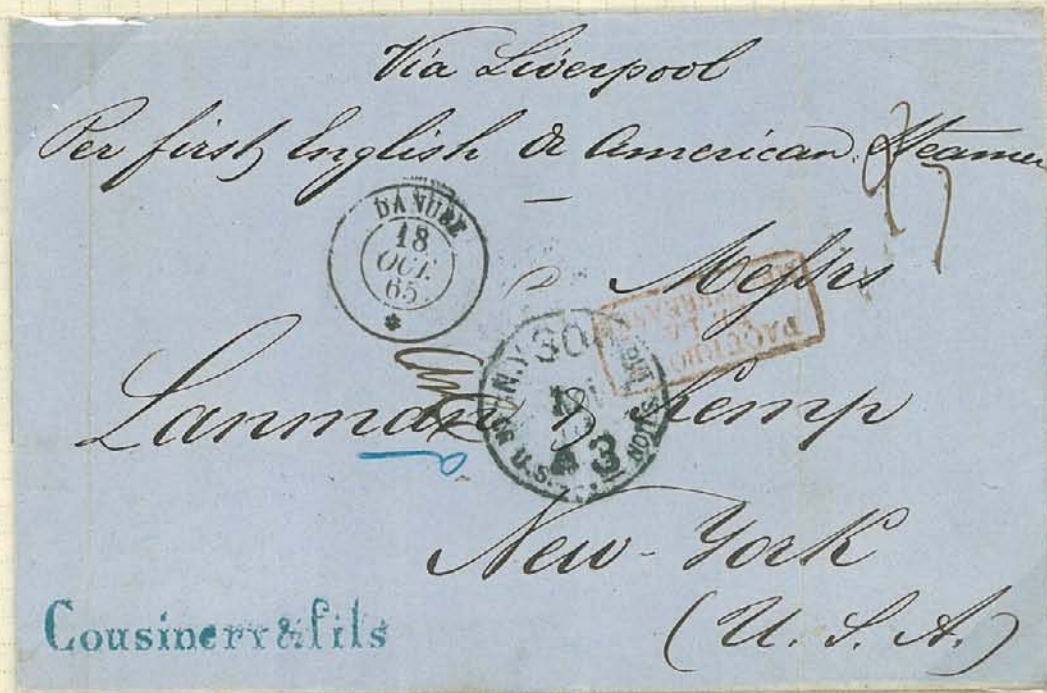 Via Liverpool
Per first English & American Steamer
DANUBE
18
OCT.
65
Messrs
PAQUEBO
Lanman & Kemp
N.Y.
30
U.S.
3
New-York
(U. S. A.)
Cousinery & fils